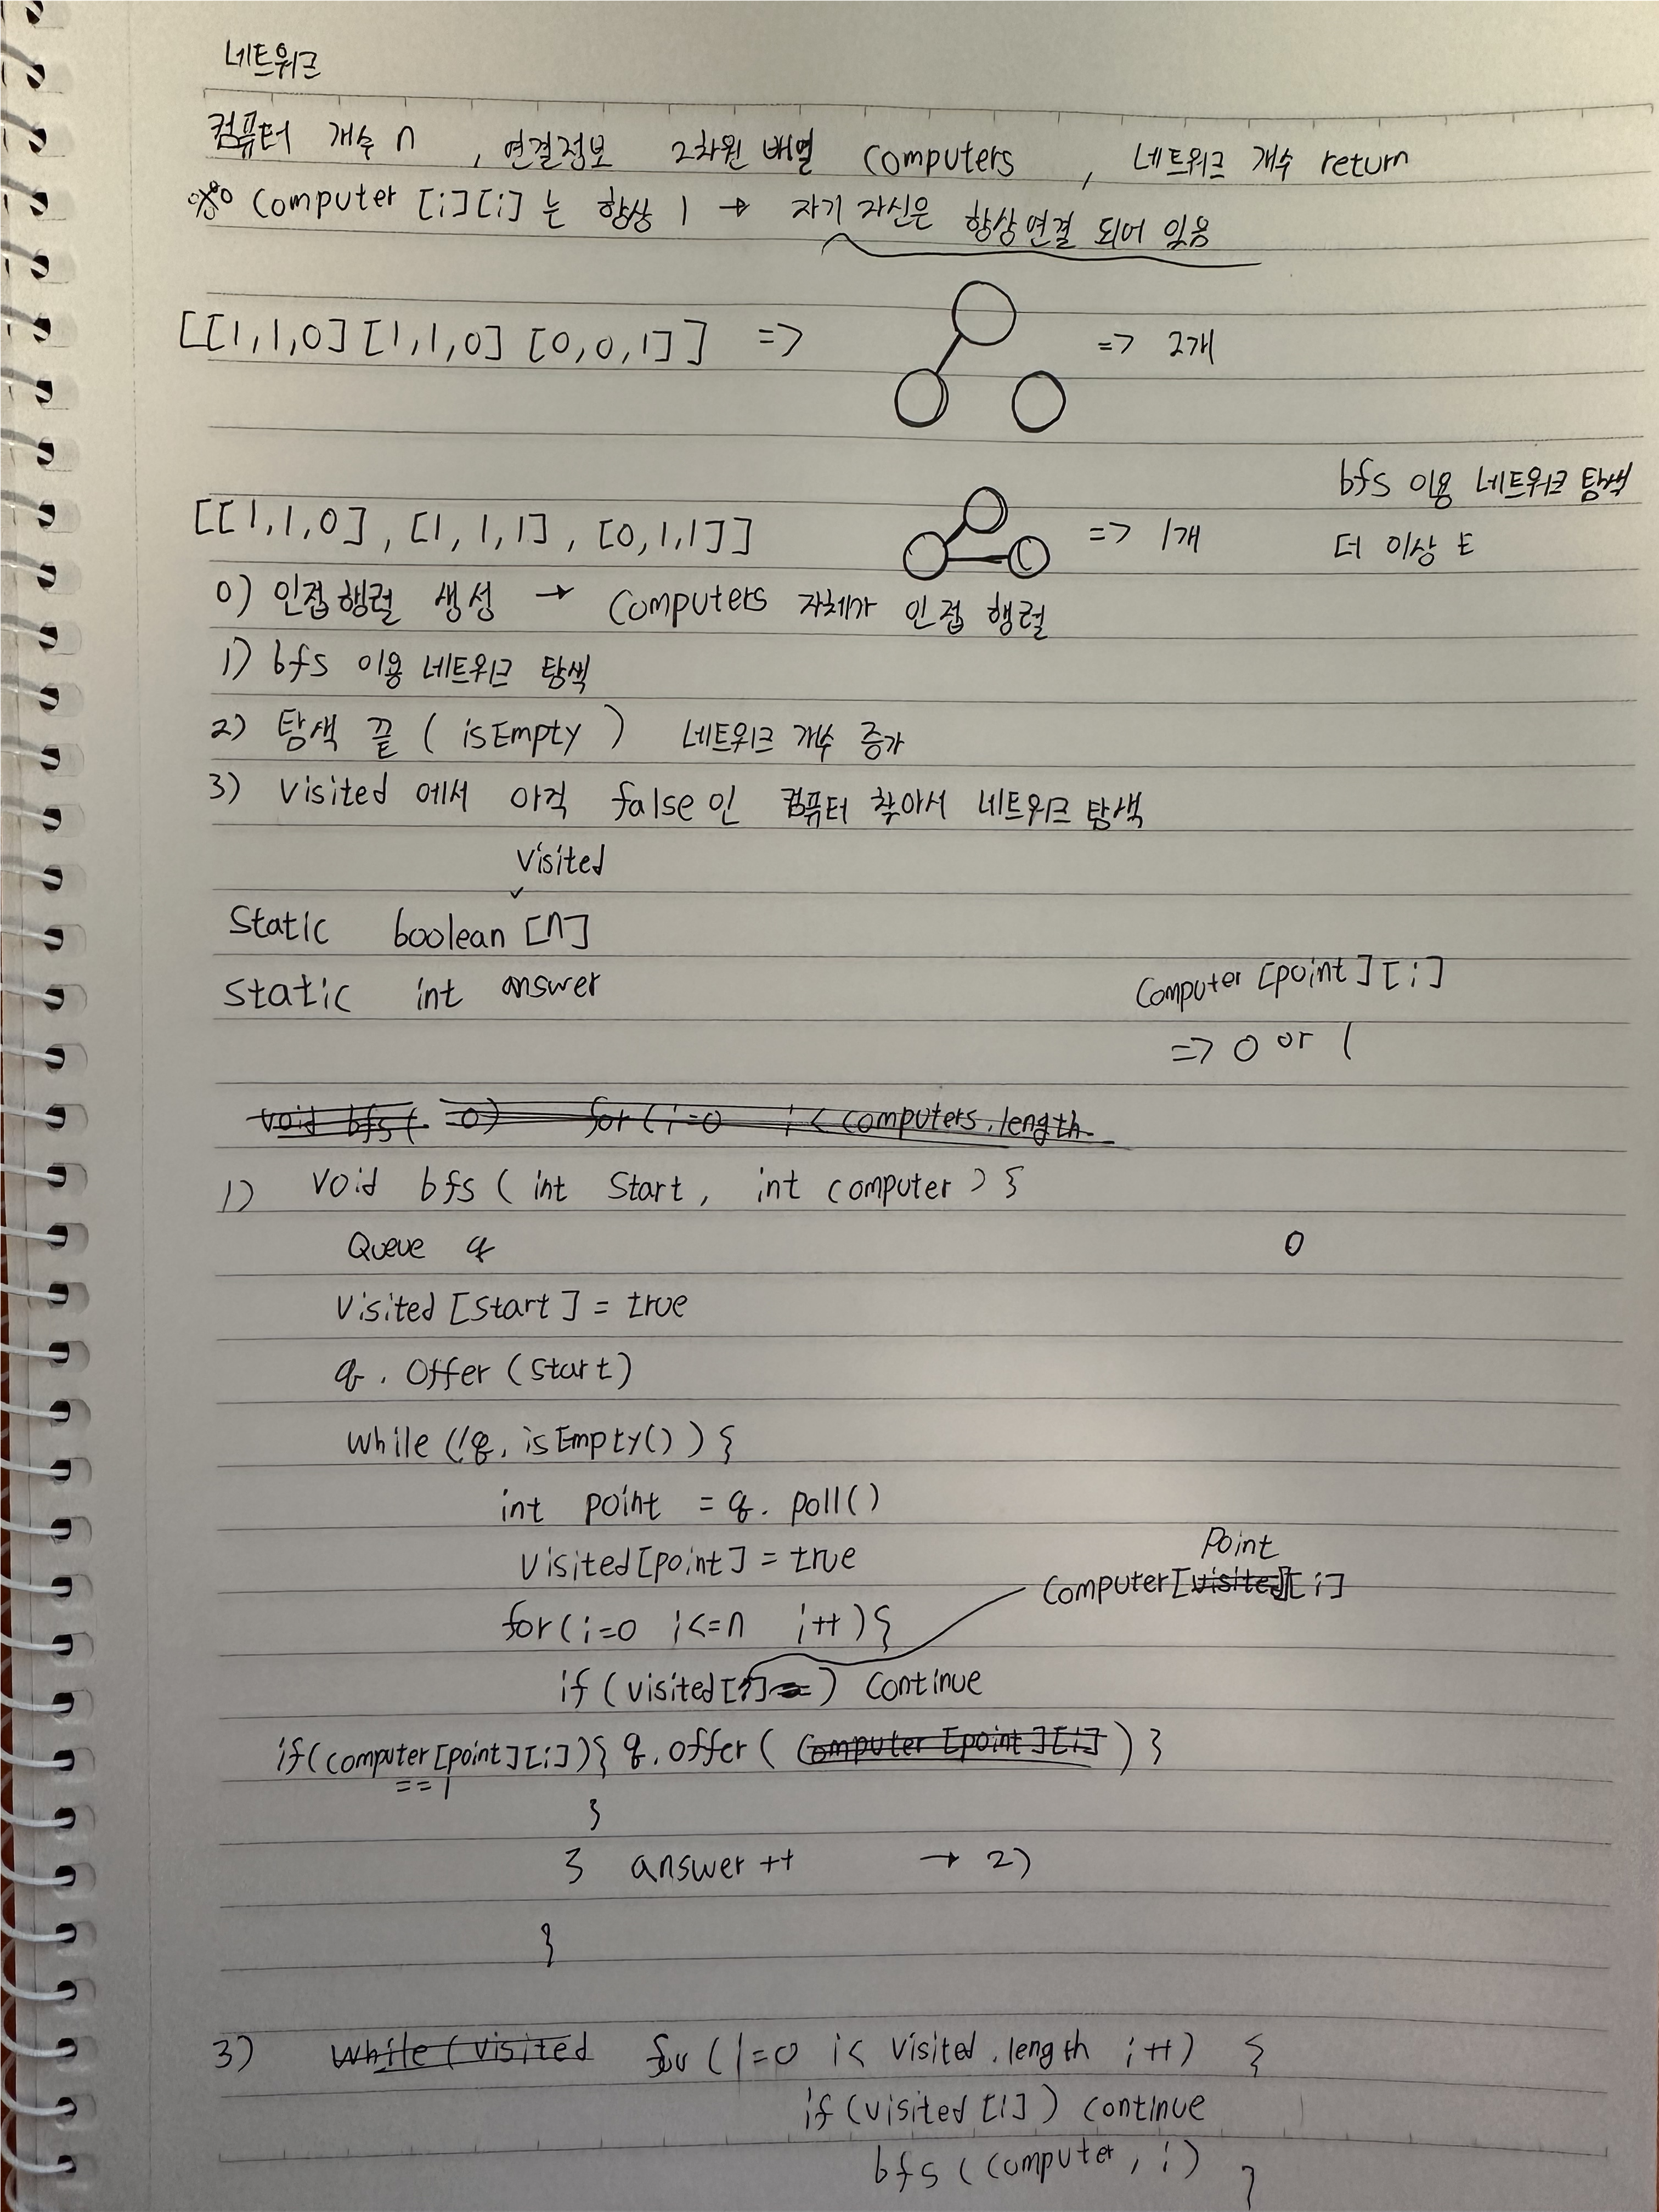 네트워크
컴퓨터 개수 n , 연결정보 2차원 배열 computers , 네트워크 개수 return
※ computer [i][i] 는 항상 1 → 자기 자신은 항상 연결 되어 있음
[[1,1,0] [1,1,0] [0,0,1]] => => 2개
bfs 이용 네트워크 탐색
[[1,1,0] , [1,1,1] , [0,1,1]] => 1개
더 이상 E
0) 인접행렬 생성 → computers 자체가 인접 행렬
1) bfs 이용 네트워크 탐색
2) 탐색 끝 ( isEmpty ) 네트워크 개수 증가
3) visited 에서 아직 false 인 컴퓨터 찾아서 네트워크 탐색
visited
static boolean [n]
static int answer
computer [point] [i]
=> 0 or 1
void bfs( 0) for (i=0 i < computers.length
1) void bfs ( int start, int computer ) {
Queue q
0
visited [start] = true
q . offer (start)
while (!q. isEmpty()) {
int point = q. poll()
visited[point] = true
point
computer[visited][i]
for(i=0 i<=n i++){
if (visited[i]=) continue
if(computer[point][i]){ q.offer ( computer [point][i] ) }
== 1
}
} answer ++ → 2)
}
3) while (visited for (i=0 i< visited.length i++) {
if (visited [i]) continue
bfs (computer, i) }